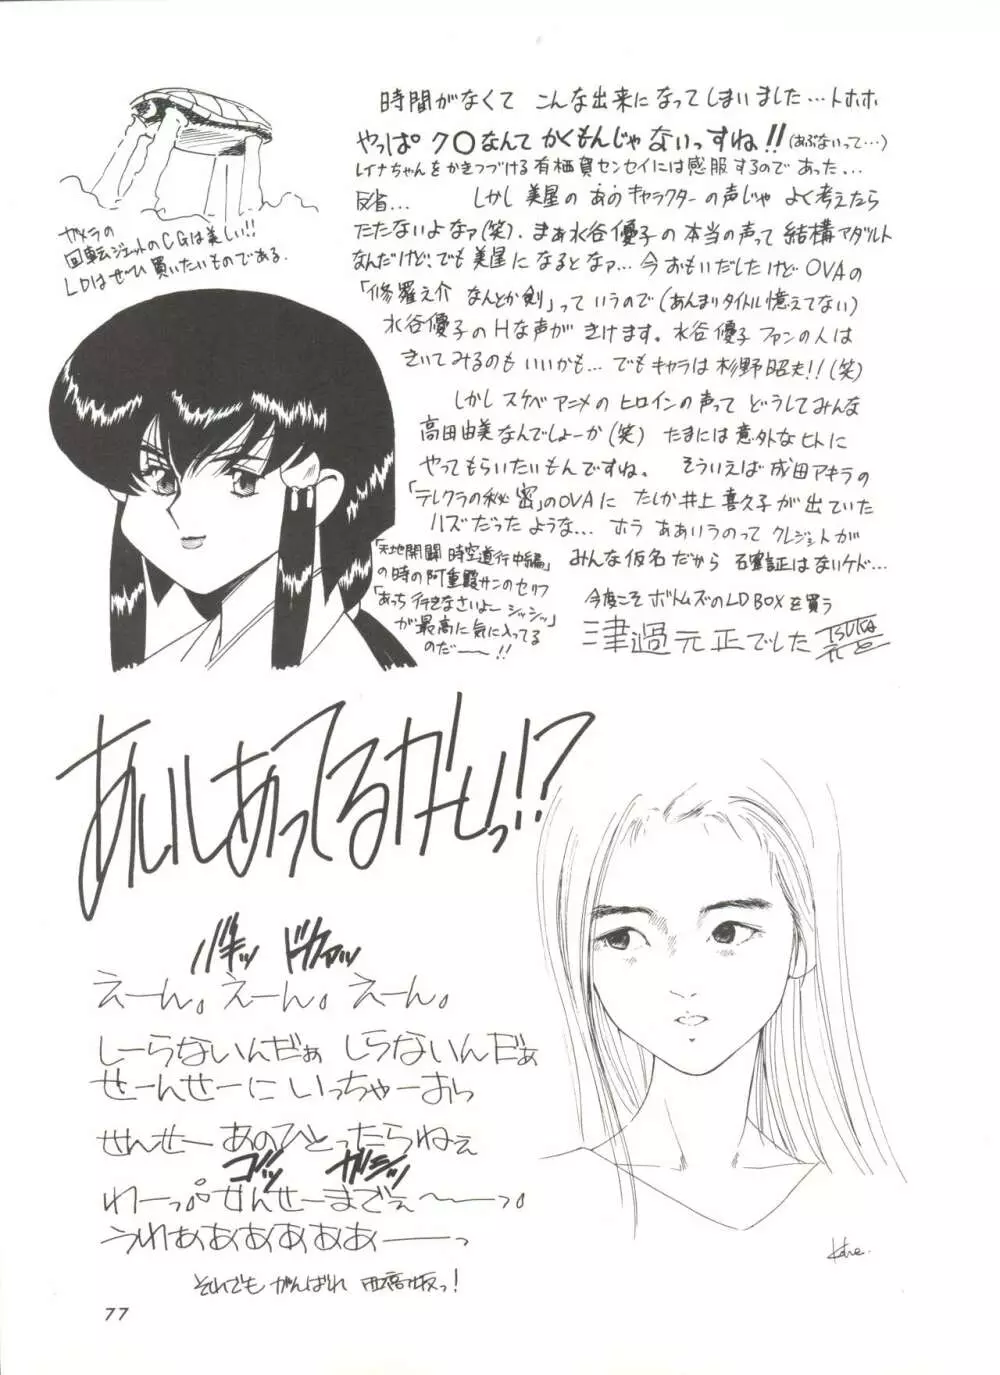 時間がなくて こんな出来になってしまいました…トホホ
やっぱ ク〇なんて かくもんじゃ ないっすね!!(あぶないって…)
レイナちゃんをかきつづける有栖賀センセイには感服するのであった…
反省… しかし 美星の あのキャラクターの声じゃ よく考えたら
たたないよなァ(笑). まぁ水谷優子の本当の声って 結構アダルト
なんだけど、でも美星になるとなァ… 今おもいだしたけど OVAの
「修羅之介 なんとか剣」っていうので(あんまりタイトル憶えてない)
水谷優子のHな声が きけます。水谷優子 ファンの人は
きいてみるのも いいかも… でもキャラは杉野昭夫!!(笑)
しかし スケベアニメの ヒロインの声って どうしてみんな
高田由美なんでしょーか(笑) たまには意外なヒトに
やってもらいたいもんですね。 そういえば 成田アキラの
「テレクラの秘密」のOVAに たしか井上喜久子が出ていた
ハズだったような… ホラ ああいうのって クレジットが
みんな仮名だから 確証はないケド…
今度こそ ボトムズのLD BOXを買う
津過元正でした
ガメラの
回転ジェットのCGは美しい!!
LDはぜひ買いたいものである.
「天地開闢 時空道行中編」
の時の阿重霞サンのセリフ
「あっち行きなさいよー シッシッ」
が最高に気に入ってる
のだ——!!
あいしあってるかーいっ!?
バキッ ドカァッ
えーん。えーん。えーん。
しーらないんだぁ しらないんだぁ
せーんせーに いっちゃーおっ
せんせー あのひとったらねぇ
ゴッ ガシッ
わーっ。せんせーまでぇ〜——っ。
うわぁああああああ——っ
それでも がんばれ 西高版っ!
77